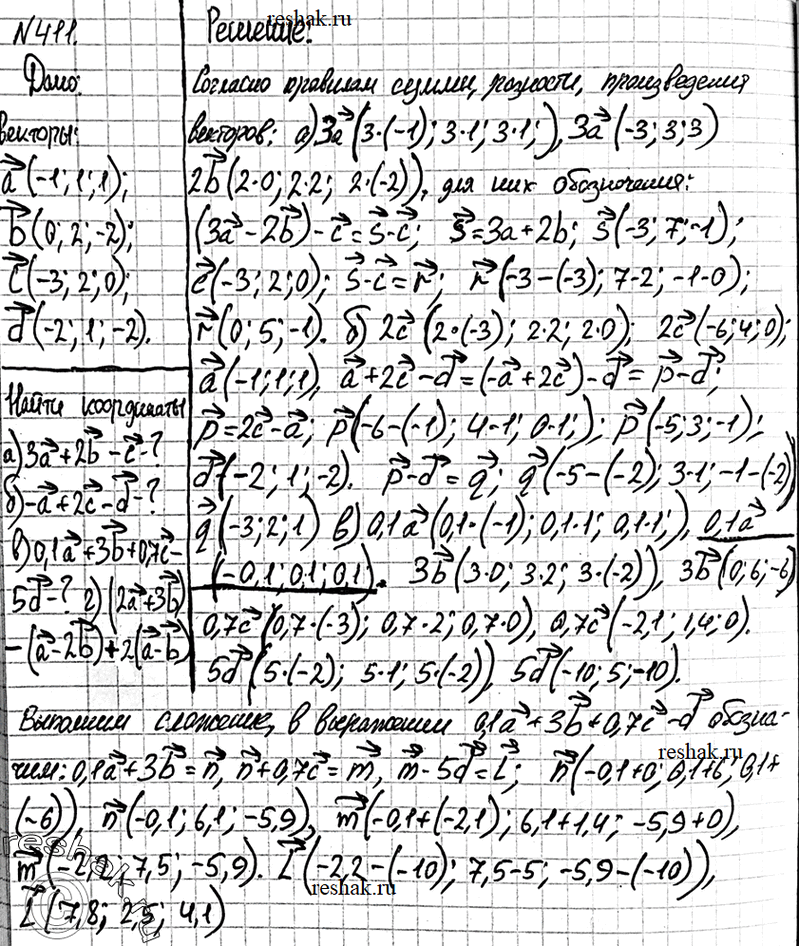 reshak.ru
№411.
Дано:
векторы:
a⃗(-1; 1; 1);
b⃗(0; 2; -2);
c⃗(-3; 2; 0);
d⃗(-2; 1; -2).
Найти координаты
а) 3a⃗+2b⃗-c⃗-?
б) -a⃗+2c⃗-d⃗-?
в) 0,1a⃗+3b⃗+0,7c⃗-
5d⃗-? г) (2a⃗+3b⃗)
-(a⃗-2b⃗)+2(a⃗-b⃗)
Решение:
Согласно правилам суммы, разности, произведения
векторов: а) 3a⃗(3·(-1); 3·1; 3·1;), 3a⃗(-3; 3; 3)
2b⃗(2·0; 2·2; 2·(-2)), для них обозначения:
(3a⃗-2b⃗)-c⃗=s⃗-c⃗; s⃗=3a+2b; s⃗(-3; 7; -1);
c⃗(-3; 2; 0); s⃗-c⃗=r⃗; r⃗(-3-(-3); 7-2; -1-0);
r⃗(0; 5; -1). б) 2c⃗(2·(-3); 2·2; 2·0); 2c⃗(-6; 4; 0);
a⃗(-1; 1; 1), a⃗+2c⃗-d⃗=(-a⃗+2c⃗)-d⃗=p⃗-d⃗;
p⃗=2c⃗-a⃗; p⃗(-6-(-1); 4-1; 0-1;); p⃗(-5; 3; -1);
d⃗(-2; 1; -2). p⃗-d⃗=q⃗; q⃗(-5-(-2); 3-1; -1-(-2))
q⃗(-3; 2; 1) в) 0,1a⃗(0,1·(-1); 0,1·1; 0,1·1;), 0,1a⃗
(-0,1; 0,1; 0,1). 3b⃗(3·0; 3·2; 3·(-2)), 3b⃗(0; 6; -6)
0,7c⃗(0,7·(-3); 0,7·2; 0,7·0), 0,7c⃗(-2,1; 1,4; 0).
5d⃗(5·(-2); 5·1; 5·(-2)), 5d⃗(-10; 5; -10).
Выполним сложение, в выражении 0,1a⃗+3b⃗+0,7c⃗-d⃗ обозна-
reshak.ru
чим: 0,1a⃗+3b⃗=n⃗, n⃗+0,7c⃗=m⃗, m⃗-5d⃗=L⃗; n⃗(-0,1+0; 0,1+6; 0,1+
(-6)), n⃗(-0,1; 6,1; -5,9), m⃗(-0,1+(-2,1); 6,1+1,4; -5,9+0),
m⃗(-2,2; 7,5; -5,9). L⃗(-2,2-(-10); 7,5-5; -5,9-(-10)),
reshak.ru
L⃗(7,8; 2,5; 4,1)
reshak.ru